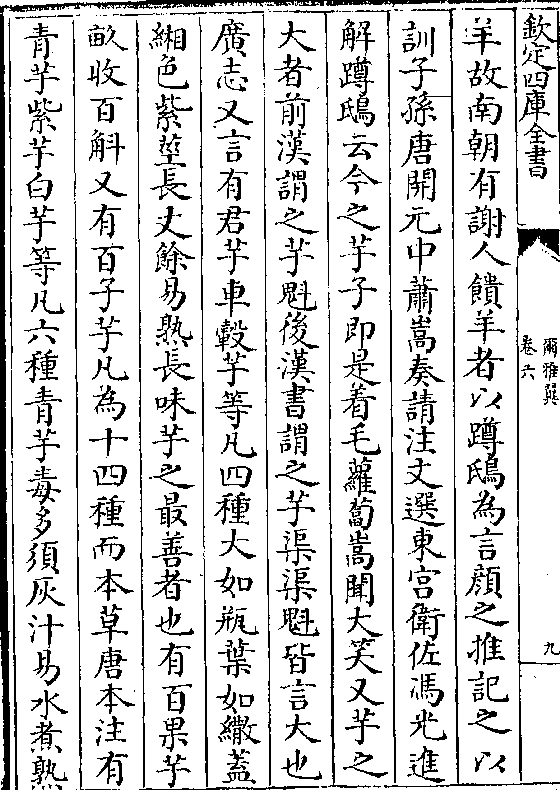 欽定四庫全書
爾雅翼
卷六
九
羊故南朝有謝人饋羊者以蹲鴟為言顔之推記之以
訓子孫唐開元中蕭嵩奏請注文選東宮衛佐馮光進
解蹲鴟云今之芋子即是着毛蘿蔔嵩聞大笑又芋之
大者前漢謂之芋魁後漢書謂之芋渠渠魁皆言大也
廣志又言有君芋車轂芋等凡四種大如瓶葉如繖蓋
緗色紫莖長丈餘易熟長味芋之最善者也有百果芋
畝收百斛又有百子芋凡為十四種而本草唐本注有
青芋紫芋白芋等凡六種青芋毒多須灰汁易水煮熟